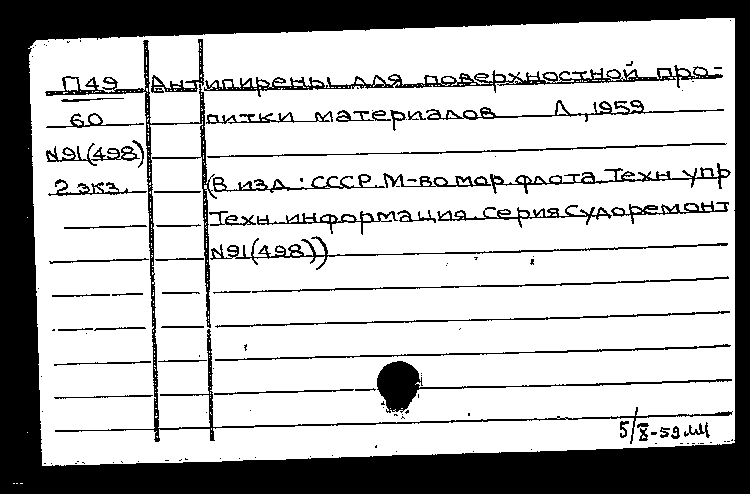 П49 Антипирены для поверхностной про-
60 питки материалов Л., 1959
N91(498)
2 экз. (В изд.: СССР. М-во мор. флота. Техн упр
Техн. информация. Серия Судоремонт
N91(498))
5/X-59